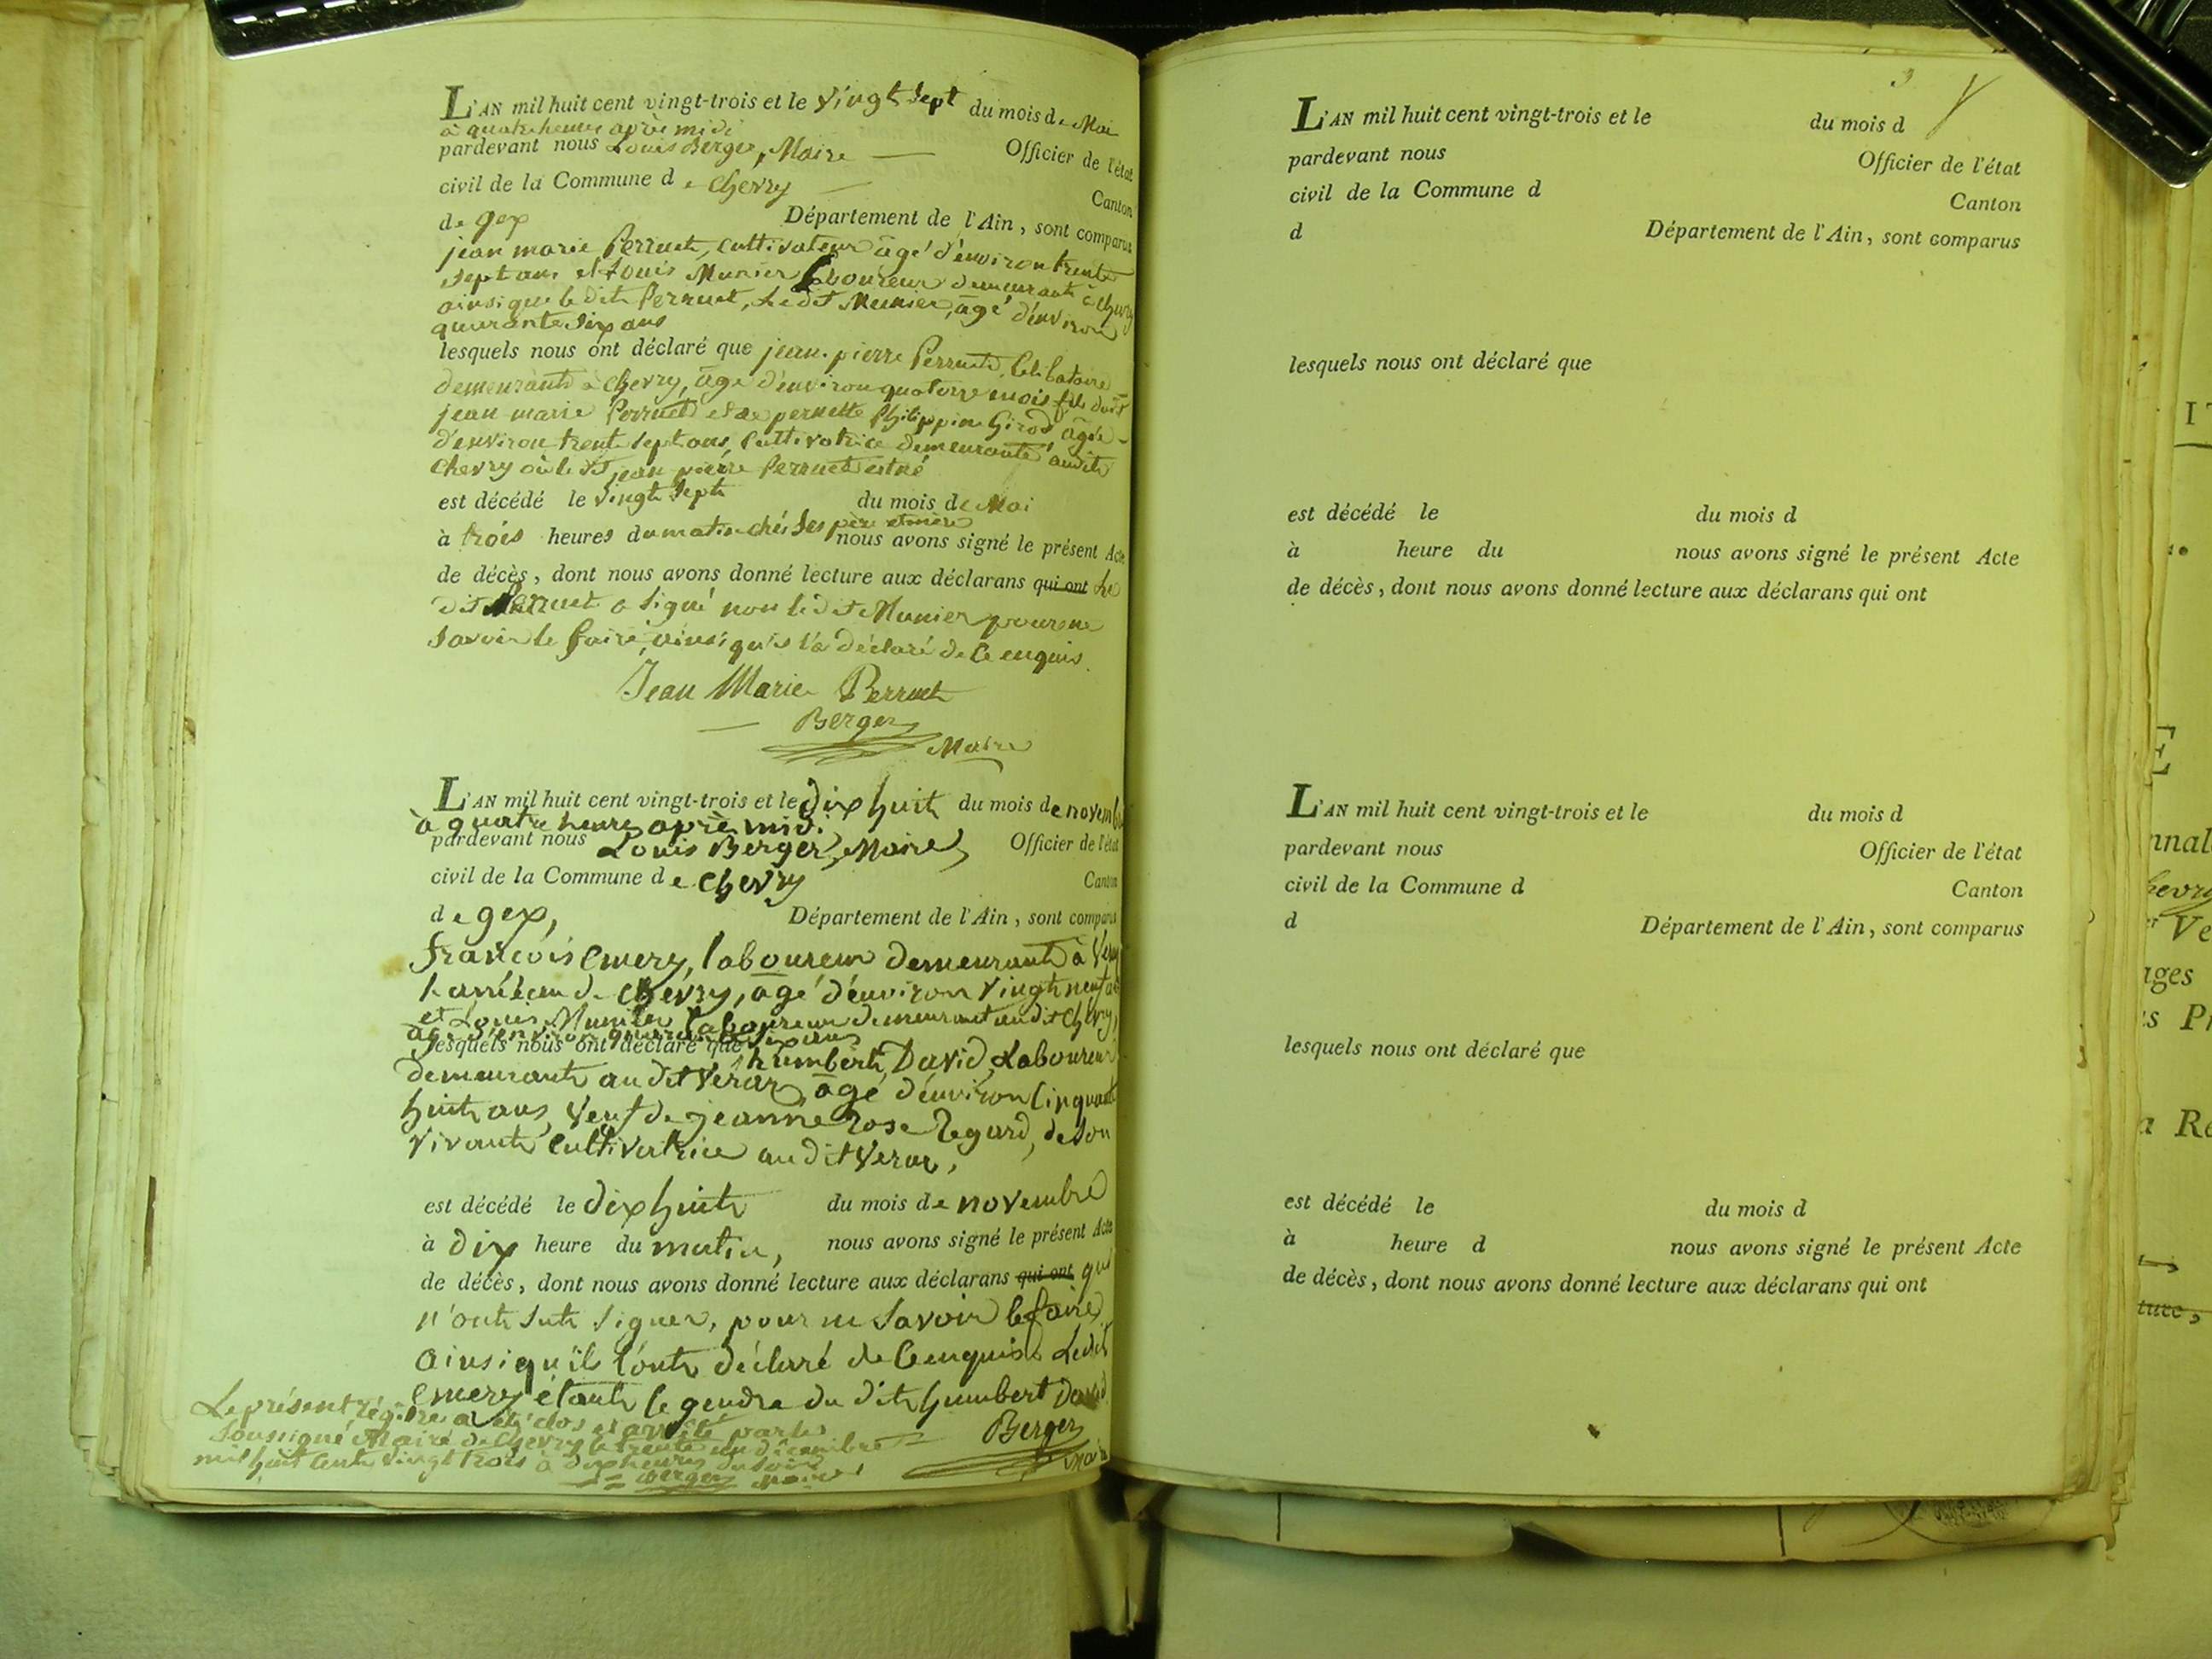 L'AN mil huit cent vingt-trois et le vingt sept du mois de Mai
à quatre heures après midi
pardevant nous Louis Berger, Maire — Officier de l'état
civil de la Commune de Chevry — Canton
de gex Département de l'Ain, sont comparus
jean marie Perruet, Cultivateur âgé d'environ trente
sept ans et Louis Munier laboureur demeurant à Chevry
ainsi que le dit Perruet, Le dit Munier, âgé d'environ
quarante six ans
lesquels nous ont déclaré que jean pierre Perruet, Celibataire
demeurant à Chevry, âgé d'environ quatorze mois fils dudit
jean marie Perruet et de pernette Philippine Girod âgée
d'environ trente sept ans, Cultivatrice demeurante audit
Chevry où le dit jean pierre Perruet est né
est décédé le vingt sept du mois de Mai
à trois heures du matin chés ses père et mère nous avons signé le présent Acte
de décès, dont nous avons donné lecture aux déclarans qui ont Le
dit Perruet a signé non le dit Munier pour ne
savoir le faire, ainsi qu'il l'a déclaré de Ce enquis.
Jean Marie Perruet
Berger
Maire
L'AN mil huit cent vingt-trois et le dix huit du mois de novembre
à quatre heures après midi
pardevant nous Louis Berger, Maire, Officier de l'état
civil de la Commune de Chevry Canton
de gex, Département de l'Ain, sont comparus
françois Emery, laboureur demeurant à
hameau de Chevry, âgé d'environ vingt neuf ans
et Louis Munier laboureur demeurant au dit Chevry,
âgé d'environ quarante six ans
lesquels nous ont déclaré que humbert David, Laboureur
demeurant au dit Veraz, âgé d'environ Cinquante
huit ans, veuf de jeanne rose Regard, de son
vivant Cultivatrice au dit Veraz,
est décédé le dix huit du mois de novembre
à dix heure du matin, nous avons signé le présent Acte
de décès, dont nous avons donné lecture aux déclarans qui ont qui
n'ont sut signer, pour ne savoir le faire
ainsi qu'ils l'ont déclaré de Ce enquis. Ledit
Emery étant le gendre du dit humbert David
Berger
Maire
Le présent régistre a été clos et arrêté par le
soussigné Maire de Chevry le trente un décembre
mil huit cent vingt trois à dix heures du soir
Berger Maire
3
L'AN mil huit cent vingt-trois et le du mois d
pardevant nous Officier de l'état
civil de la Commune d Canton
d Département de l'Ain, sont comparus
lesquels nous ont déclaré que
est décédé le du mois d
à heure du nous avons signé le présent Acte
de décès, dont nous avons donné lecture aux déclarans qui ont
L'AN mil huit cent vingt-trois et le du mois d
pardevant nous Officier de l'état
civil de la Commune d Canton
d Département de l'Ain, sont comparus
lesquels nous ont déclaré que
est décédé le du mois d
à heure d nous avons signé le présent Acte
de décès, dont nous avons donné lecture aux déclarans qui ont